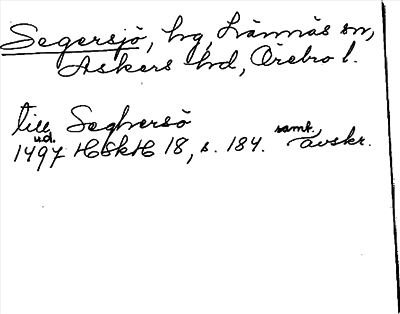 Segersjö, hg, Lännäs sn,
Askers hd, Örebro l.
till Seghersö
u.d. samt.
1497 HSkH 18, s. 184. avskr.